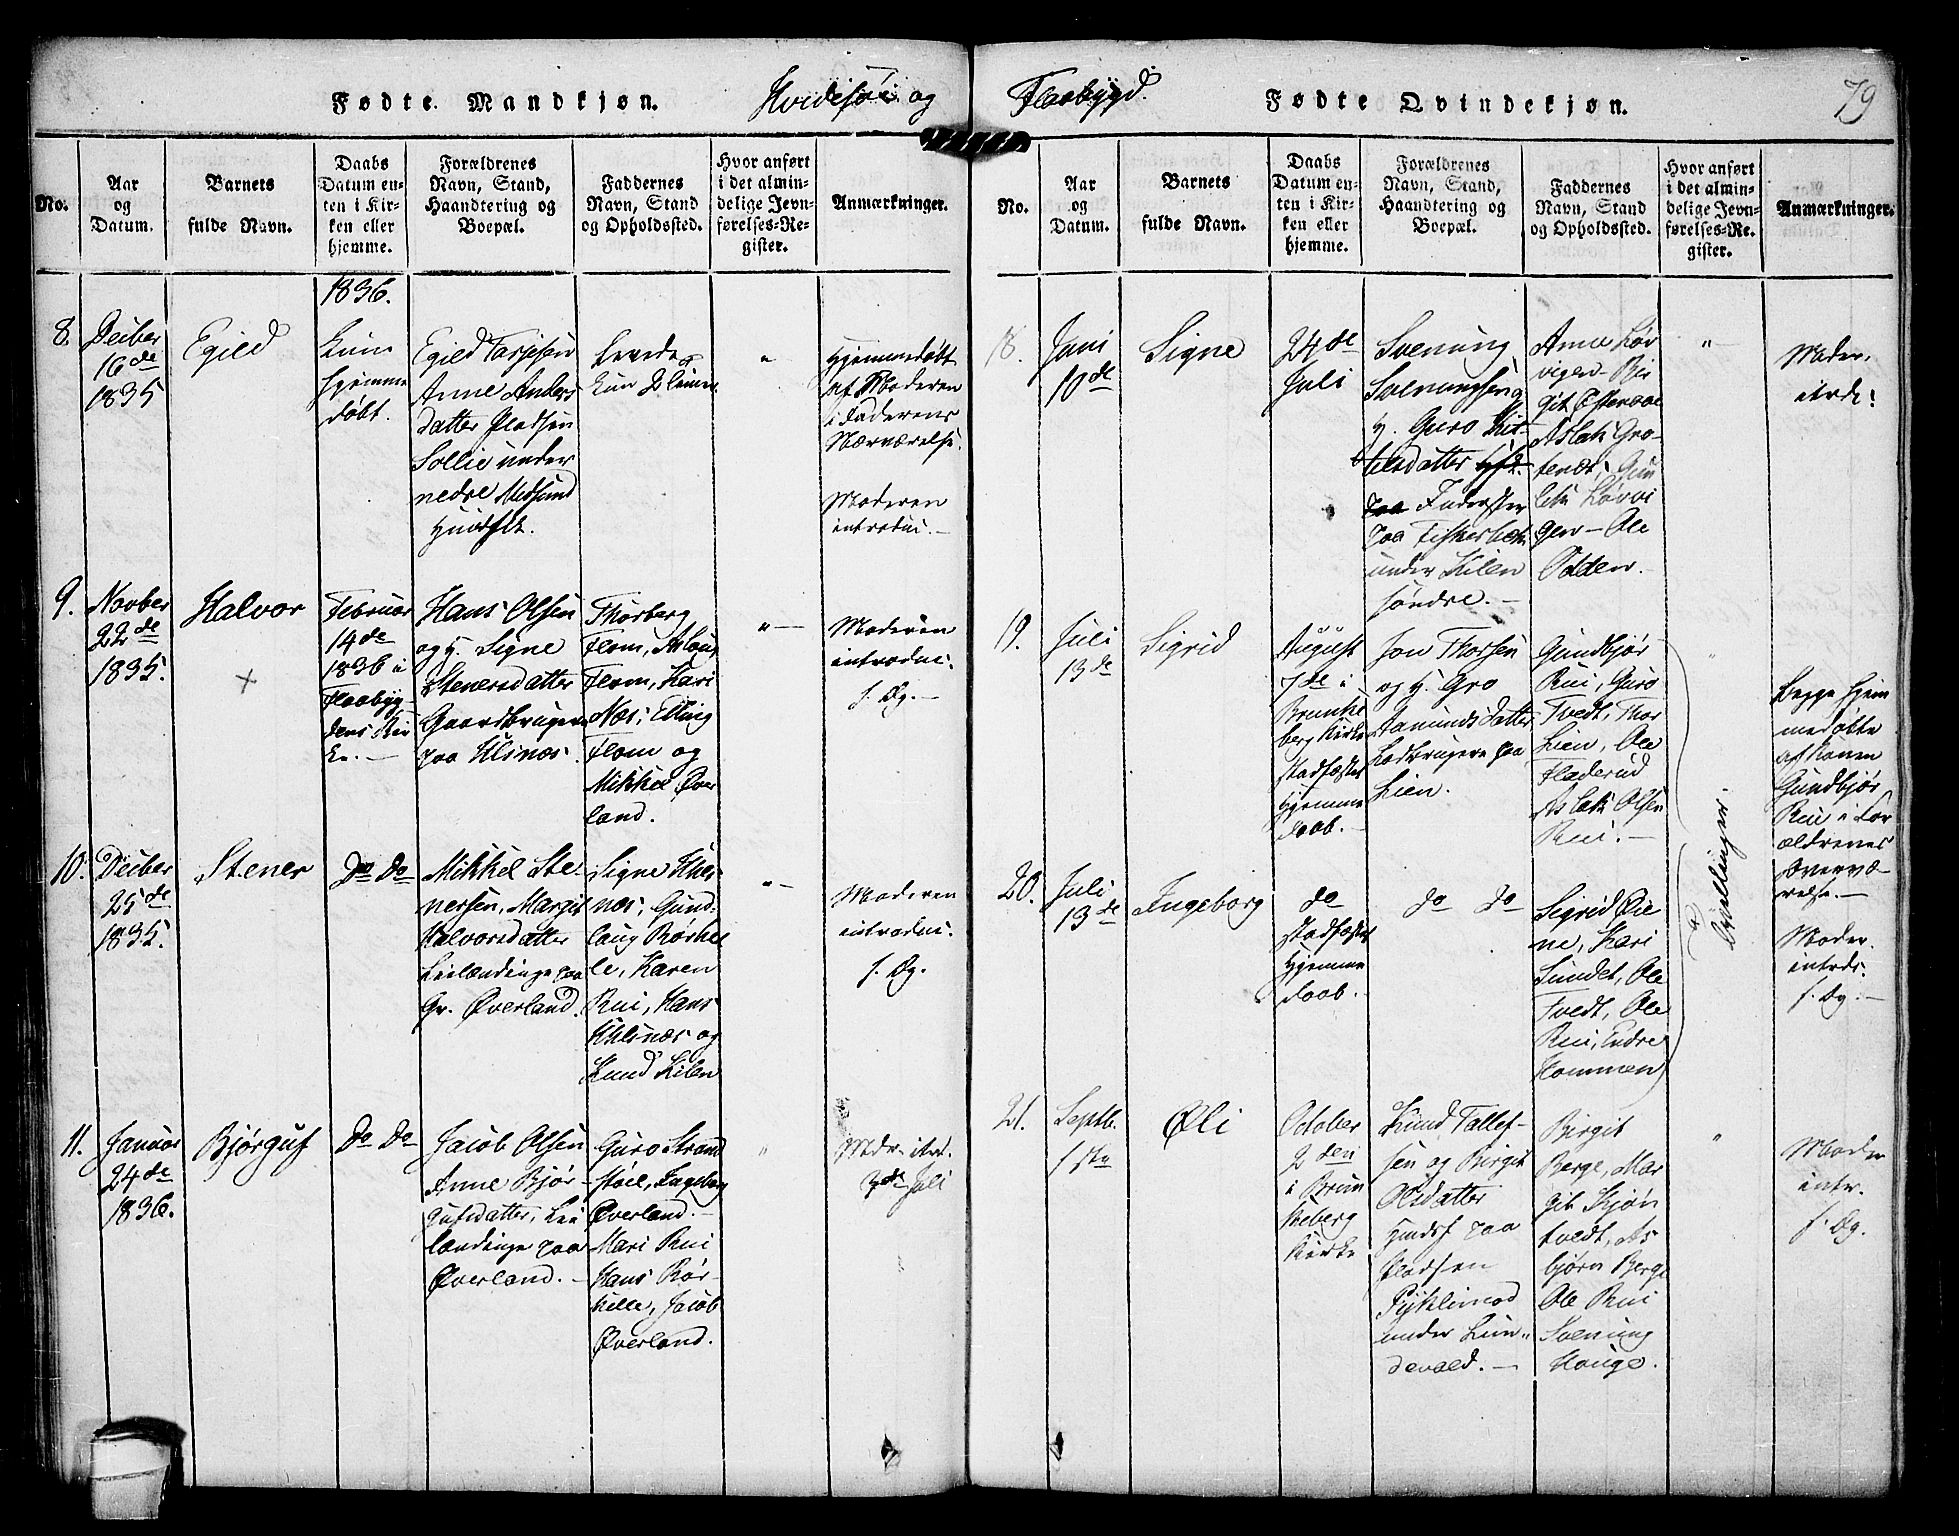 Fødte Mandkjøn.
Hvidesøe og
Flaabygd.
Fødte Qvindekjøn.
79
No.
Aar
og
Datum.
Barnets
fulde Navn.
Daabs
Datum en-
ten i Kir-
ken eller
hjemme.
Forældrenes
Navn, Stand,
Haandtering og
Boepæl.
Faddernes
Navn, Stand
og Opholdssted.
Hvor anført
i det almin-
delige Jevn-
førelses-Re-
gister.
Anmærkninger.
8.
Decber
16de
1835
Egild
1836.
Kun
hjemme
døbt.
Egild Tarjesen
Anne Anders
datter Pladsen
Sollie under
nedre Midsund
Huusf.
Levede
kun 2 Timer
"
Hjemmedøbt
af Moderen
i Faderens
Nærværelse.
Moderen
introduc.
9.
Novber
22de
1835.
Halvor
+
Februar
14de
1836 i
Flaabyg-
dens Kir
ke.
Hans Olsen
og H. Signe
Stenersdatter
Gaardbrugere
paa Kilsnæs.
Thorberg
Flom, Aslaug
Flom, Kari
Næs, Elling
Flom og
Mikkel Over
land.
"
Moderen
introduc.
s. Dg.
10.
Decber
25de
1835.
Stener
do do
Mikkel Ste-
nersen, Margit
Halvorsdatter
Leilændinge paa
Gr. Øverland.
Signe Kils-
næs, Gund-
laug Rørhel
le, Karen
Rui, Hans
Kilsnæs og
Knud Kilen
"
Moderen
introduc.
s. Dg.
11.
Januar
24de
1836.
Bjørguf
do do
Jacob Olsen
Anne Bjør-
gufsdatter, Lei
lændinge paa
Øverland.
Guro Strand
støil, Ingeborg
Øverland.
Mari Rui
Hans Rør-
helle, Jacob
Øverland.
"
Modr. itrd.
3de Juli
No.
Aar
og
Datum.
Barnets
fulde Navn.
Daabs
Datum en-
ten i Kir-
ken eller
hjemme.
Forældrenes
Navn, Stand,
Haandtering og
Boepæl.
Faddernes
Navn, Stand
og Opholdssted.
Hvor anført
i det almin-
delige Jevn-
førelses-Re-
gister.
Anmærkninger.
18.
Juni
10de
Signe
24de
Juli
Svenung
Svenungsen og
H. Guro Kit-
tilsdatter
paa Inderster
paa Fiskerbæk
under Kilen
søndre.
Anne Løv
vigen - Bir
git
Aslak Gro-
tenæs, Gun
leik Løvvi
gen - Ole
Odden.
"
Moder.
itrdc!
19.
Juli
13de
Sigrid
August
7de i
Brunke
berg Kirke
stadfæstet
Hjemme
daab.
Jon Thorsen
og H. Gro
Aamundsdatter
Ladbrugere paa
Lien.
Gundbjør
Rui, Guro
Tvedt, Thor
Lien, Ole
Fladerud
Aslak Olsen
Rui.
"
Tvillinger.
Begge hjem
medøbte
af Konen
Gundbjør
Rui i For
ældrenes
Overvæ-
relse.
20.
Juli
13de
Ingeborg
do
stadfæstet
Hjemme
daab.
do do
Sigrid Øie
ne, Kari
Sundet, Ole
Tvedt, Ole
Rui, Endre
Hommen
Moder.
intrdc.
s. Dg.
21.
Septb.
1ste
Øli
October
2den
i Brun
keberg
Kirke
Knud Tallef-
sen og Birgit
Olsdatter
Huusf paa
Pladsen
under Lun-
devald.
Birgit
Berge, Mar
git Kjøn
tvedt, As
bjørn Berge
Ole Rui
Svenung
Haugo.
"
Moder
intr.
s. Dg.